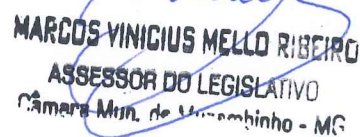 MARCOS VINICIUS MELLO RIBEIRO
ASSESSOR DO LEGISLATIVO
Câmara Mun. de Muzambinho - MG